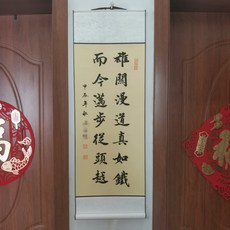 雄關漫道真如鐵
而今邁步從頭越
福